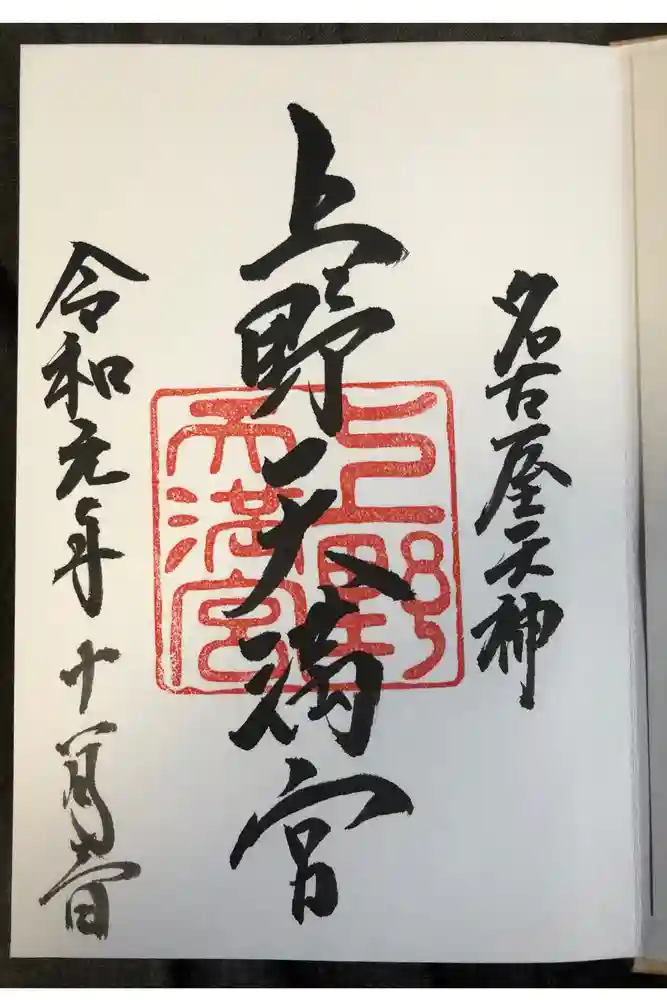 名古屋天神
上野天満宮
上野
天満宮
令和元年十一月六日